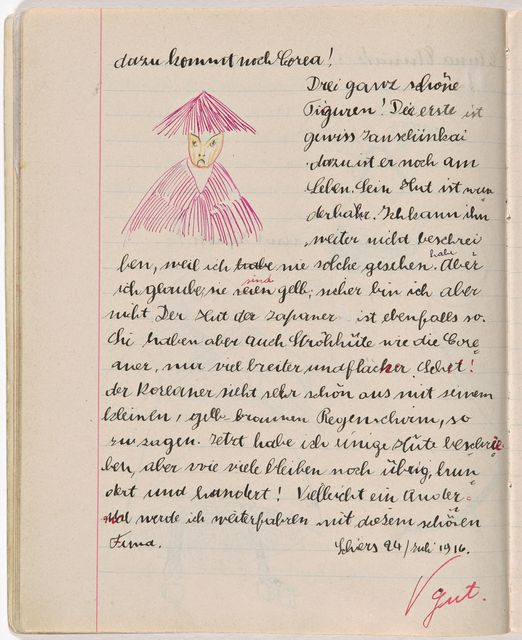 dazu kommt noch Corea!
Drei ganz schöne
Figuren! Die erste ist
gewiss
dazu ist er noch am
Leben. Sein Hut ist wun
derbahr. Ich kann ihn
weiter nicht beschrei
ben, weil ich habe nie solche gesehen habe. Aber
ich glaube, sie seien sind gelb, sicher bin ich aber
nicht Der Hut der Japaner ist ebenfalls so.
Sie haben aber auch Strohhüte wie die Core
aner, nur viel breiter und flacher. Sehet!
der Koreaner sieht sehr schön aus mit seinem
kleinen, gelb braunen Regenschirm, so
zu sagen. Jetzt habe ich einige Hüte beschrie
ben, aber wie viele bleiben noch übrig, hun
dert und hundert! Vielleicht ein Ander=
Mal werde ich weiterfahren mit diesem schönen
Tema. Schiers 24/Juli 1916.
gut.